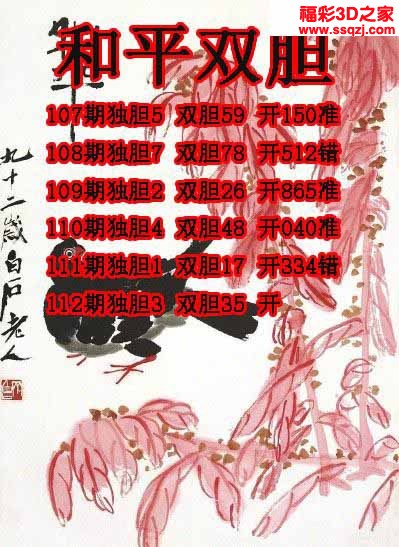 福彩3D之家
www.ssqzj.com
和平双胆
107期独胆5 双胆59 开150准
108期独胆7 双胆78 开512错
109期独胆2 双胆26 开865准
110期独胆4 双胆48 开040准
111期独胆1 双胆17 开334错
112期独胆3 双胆35 开
九十二岁白石老人